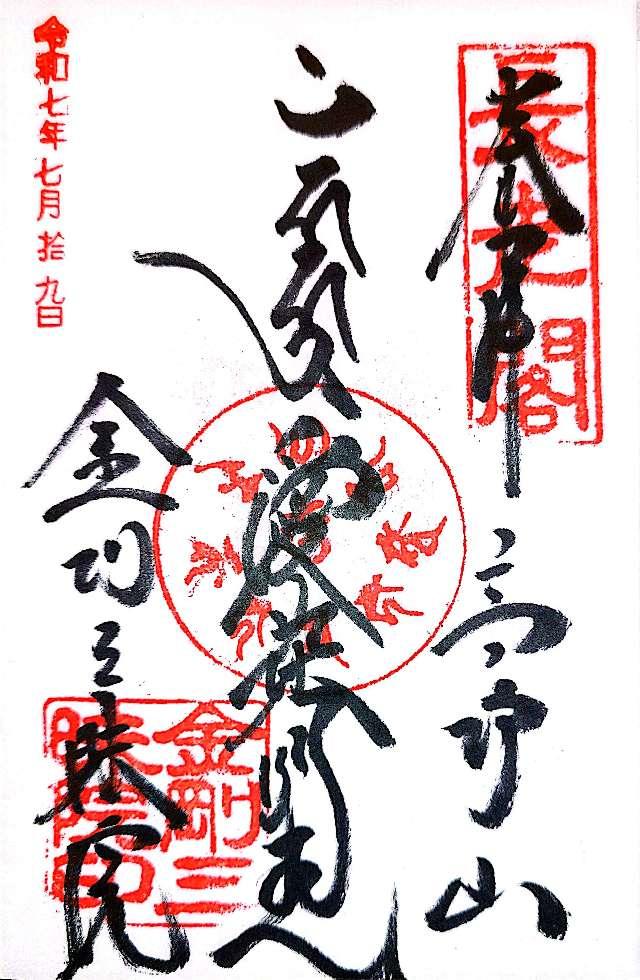 奉拝 高野山
長老閣
愛染明王
金剛三昧院
金剛三
昧院印
令和七年七月拾九日